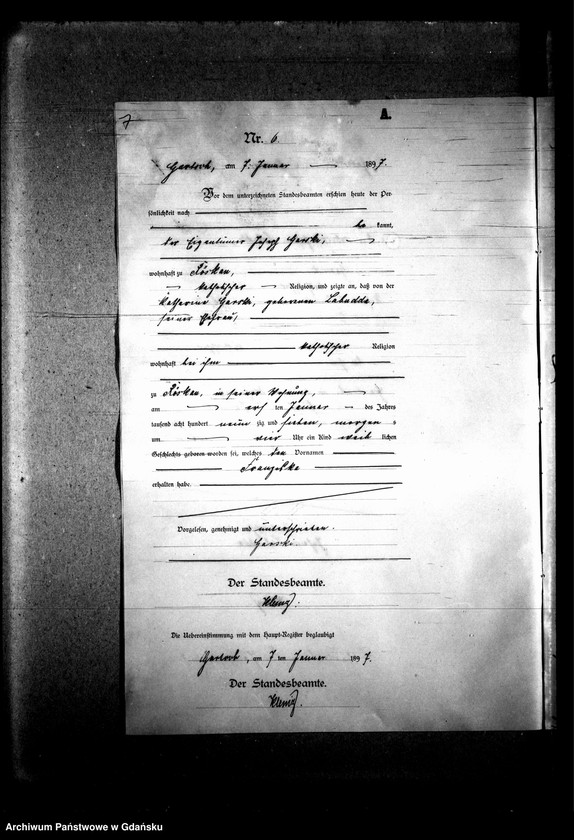 7
A.
Nr. 6.
am 7. Januar 1897.
Vor dem unterzeichneten Standesbeamten erschien heute, der Per-
sönlichkeit nach
be kannt,
der Eigentümer Joseph Gerski,
wohnhaft zu
katholischer Religion, und zeigte an, daß von der
Katharina Gerski, geborenen Labudda,
seiner Ehefrau,
katholischer Religion
wohnhaft bei ihm
zu in seiner Wohnung,
am ten Januar des Jahres
tausend acht hundert neun zig und sieben, morgens
um vier Uhr ein Kind weib lichen
Geschlechts geboren worden sei, welches den Vornamen
Franziska
erhalten habe.
Vorgelesen, genehmigt und unterschrieben.
Gerski.
Der Standesbeamte.
Die Uebereinstimmung mit dem Haupt-Register beglaubigt
, am 7 ten Januar 1897.
Der Standesbeamte.
Archiwum Państwowe w Gdańsku